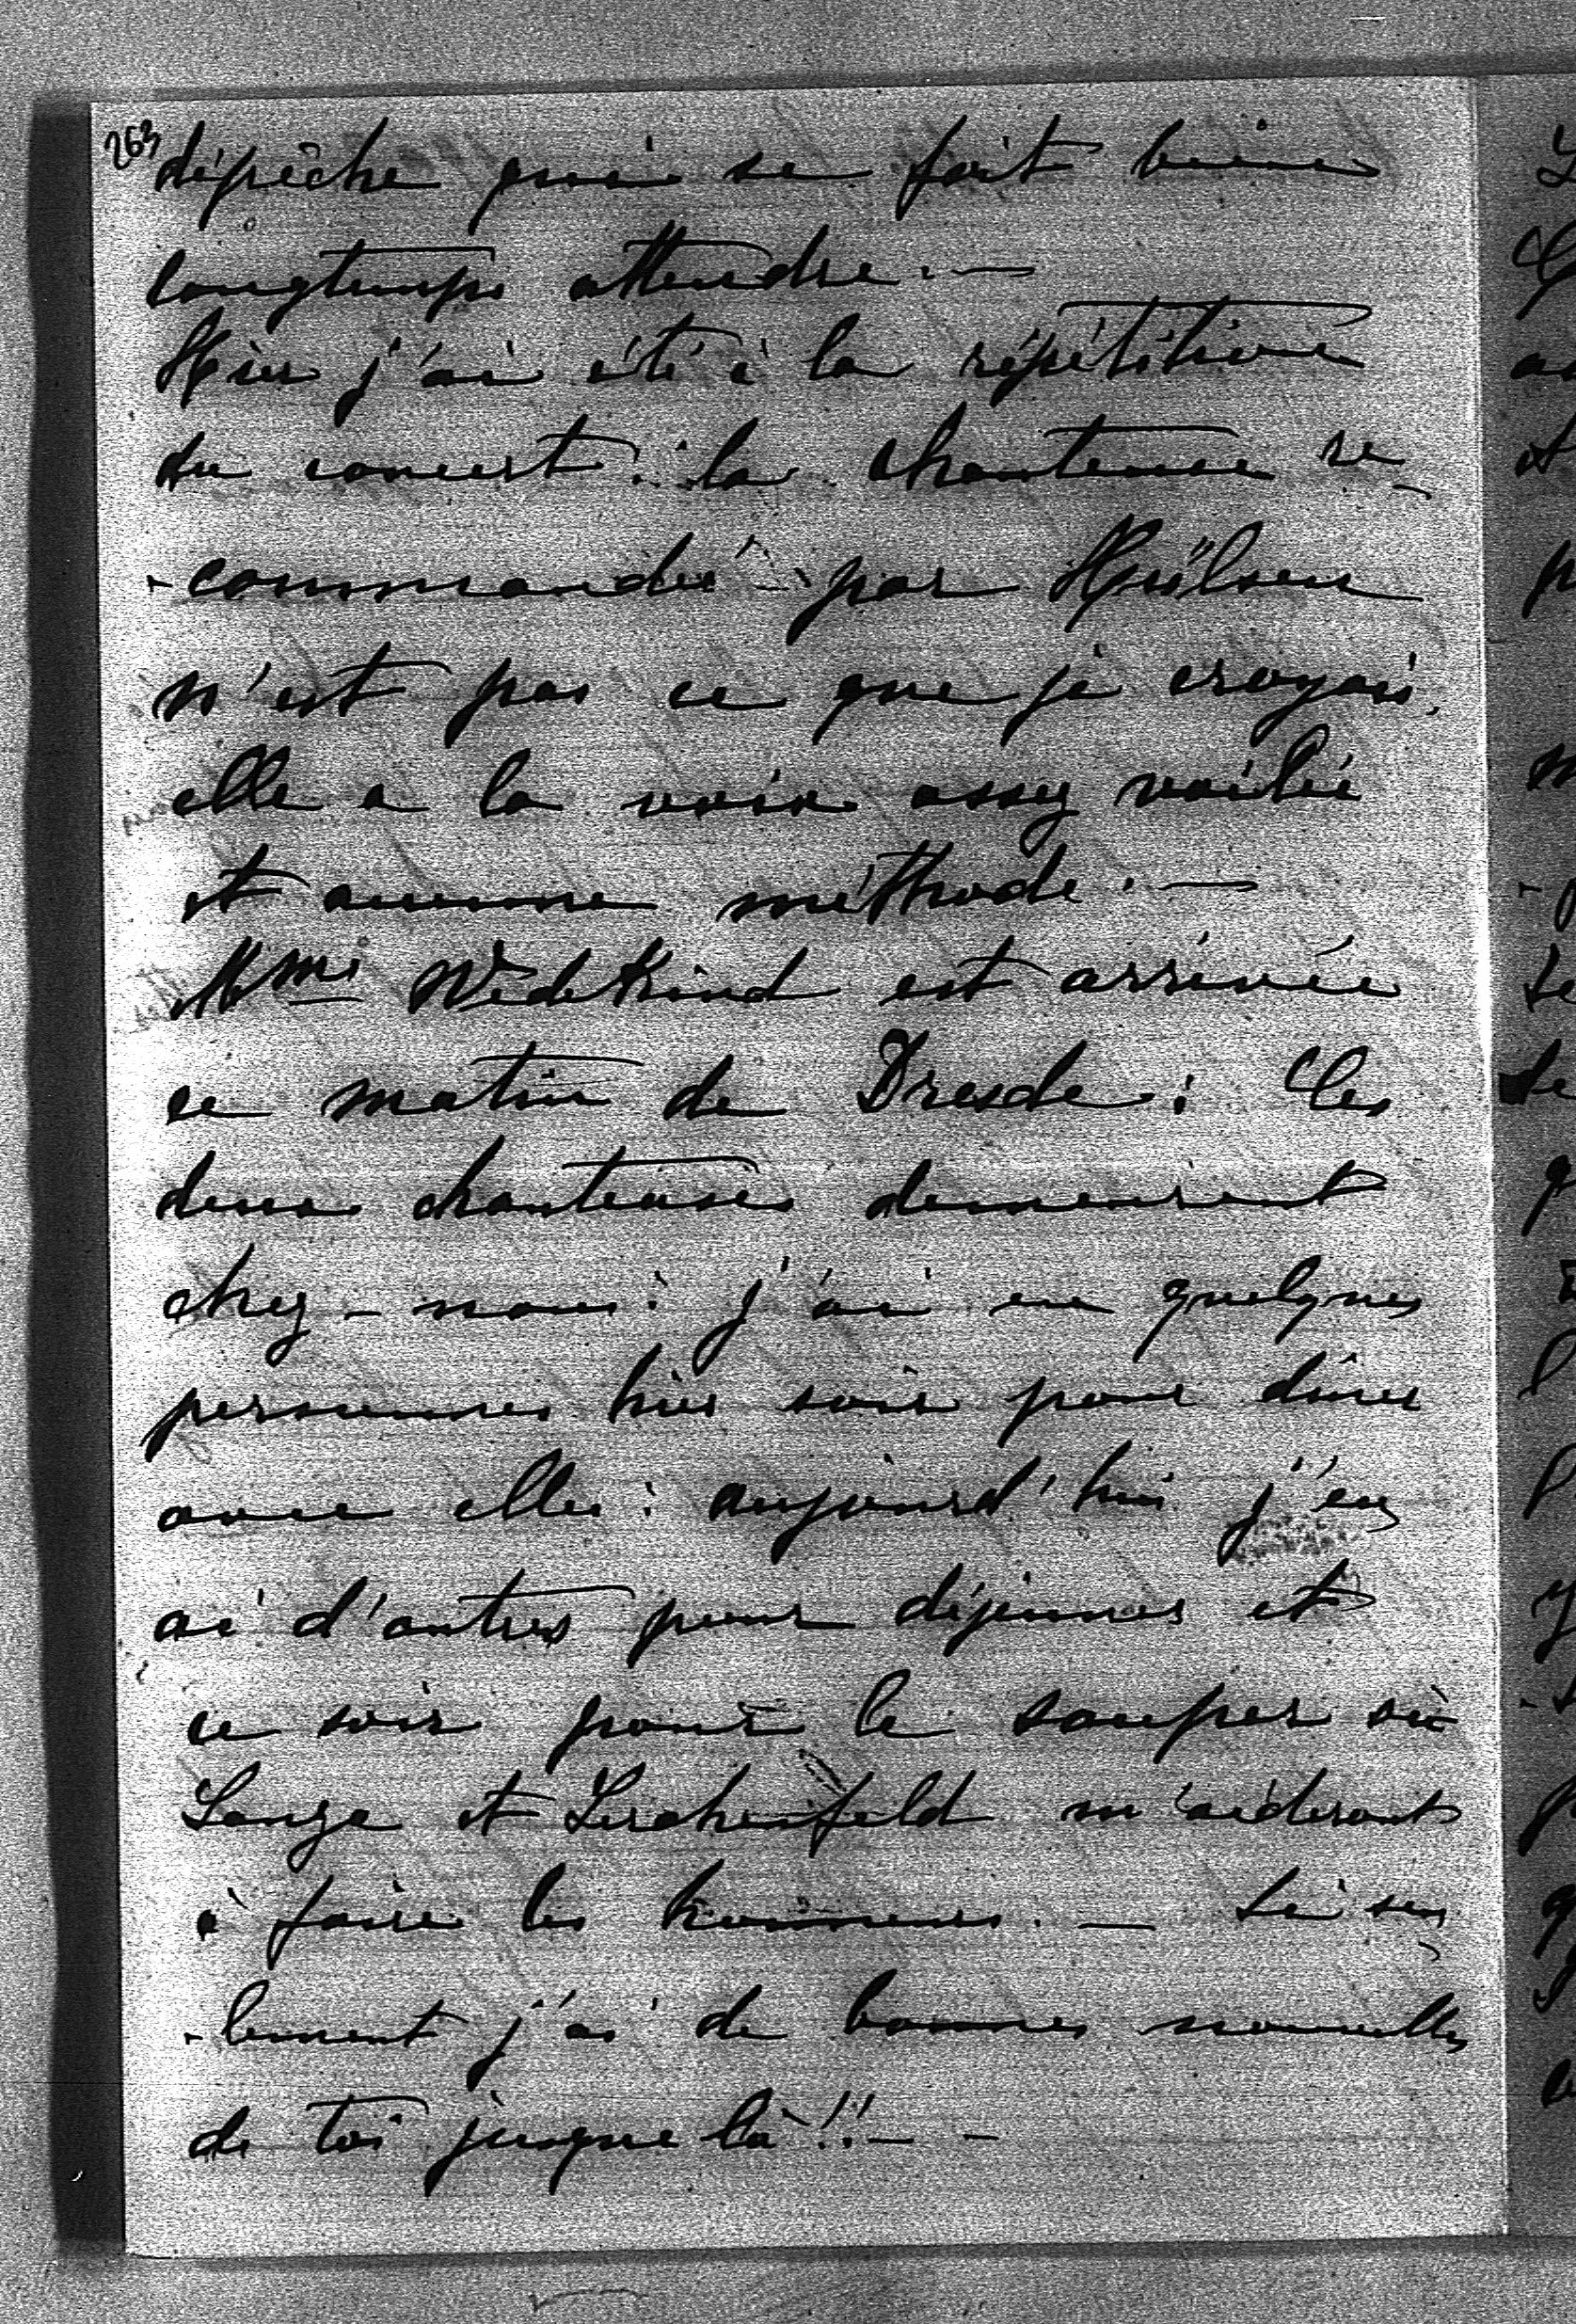 263
dépêche qui se fait bien
longtemps attendre. —
Hier j'ai été à la répétition
du concert : la chanteuse re-
-commandée par Hülsen
n'est pas ce que je croyais,
elle a la voix assez voilée
et aucune méthode. —
Mme Wedekind est arrivée
ce matin de Dresde : Les
deux chanteuses demeurent
chez-nous : j'ai eu quelques
personnes hier soir pour dîner
avec elles : aujourd'hui j'en
ai d'autres pour déjeuner et
ce soir pour le souper où
Lanza et Lerchenfeld m'aideront
à faire les honneurs. — Si seu-
-lement j'ai de bonnes nouvelles
de toi jusque là !! — –